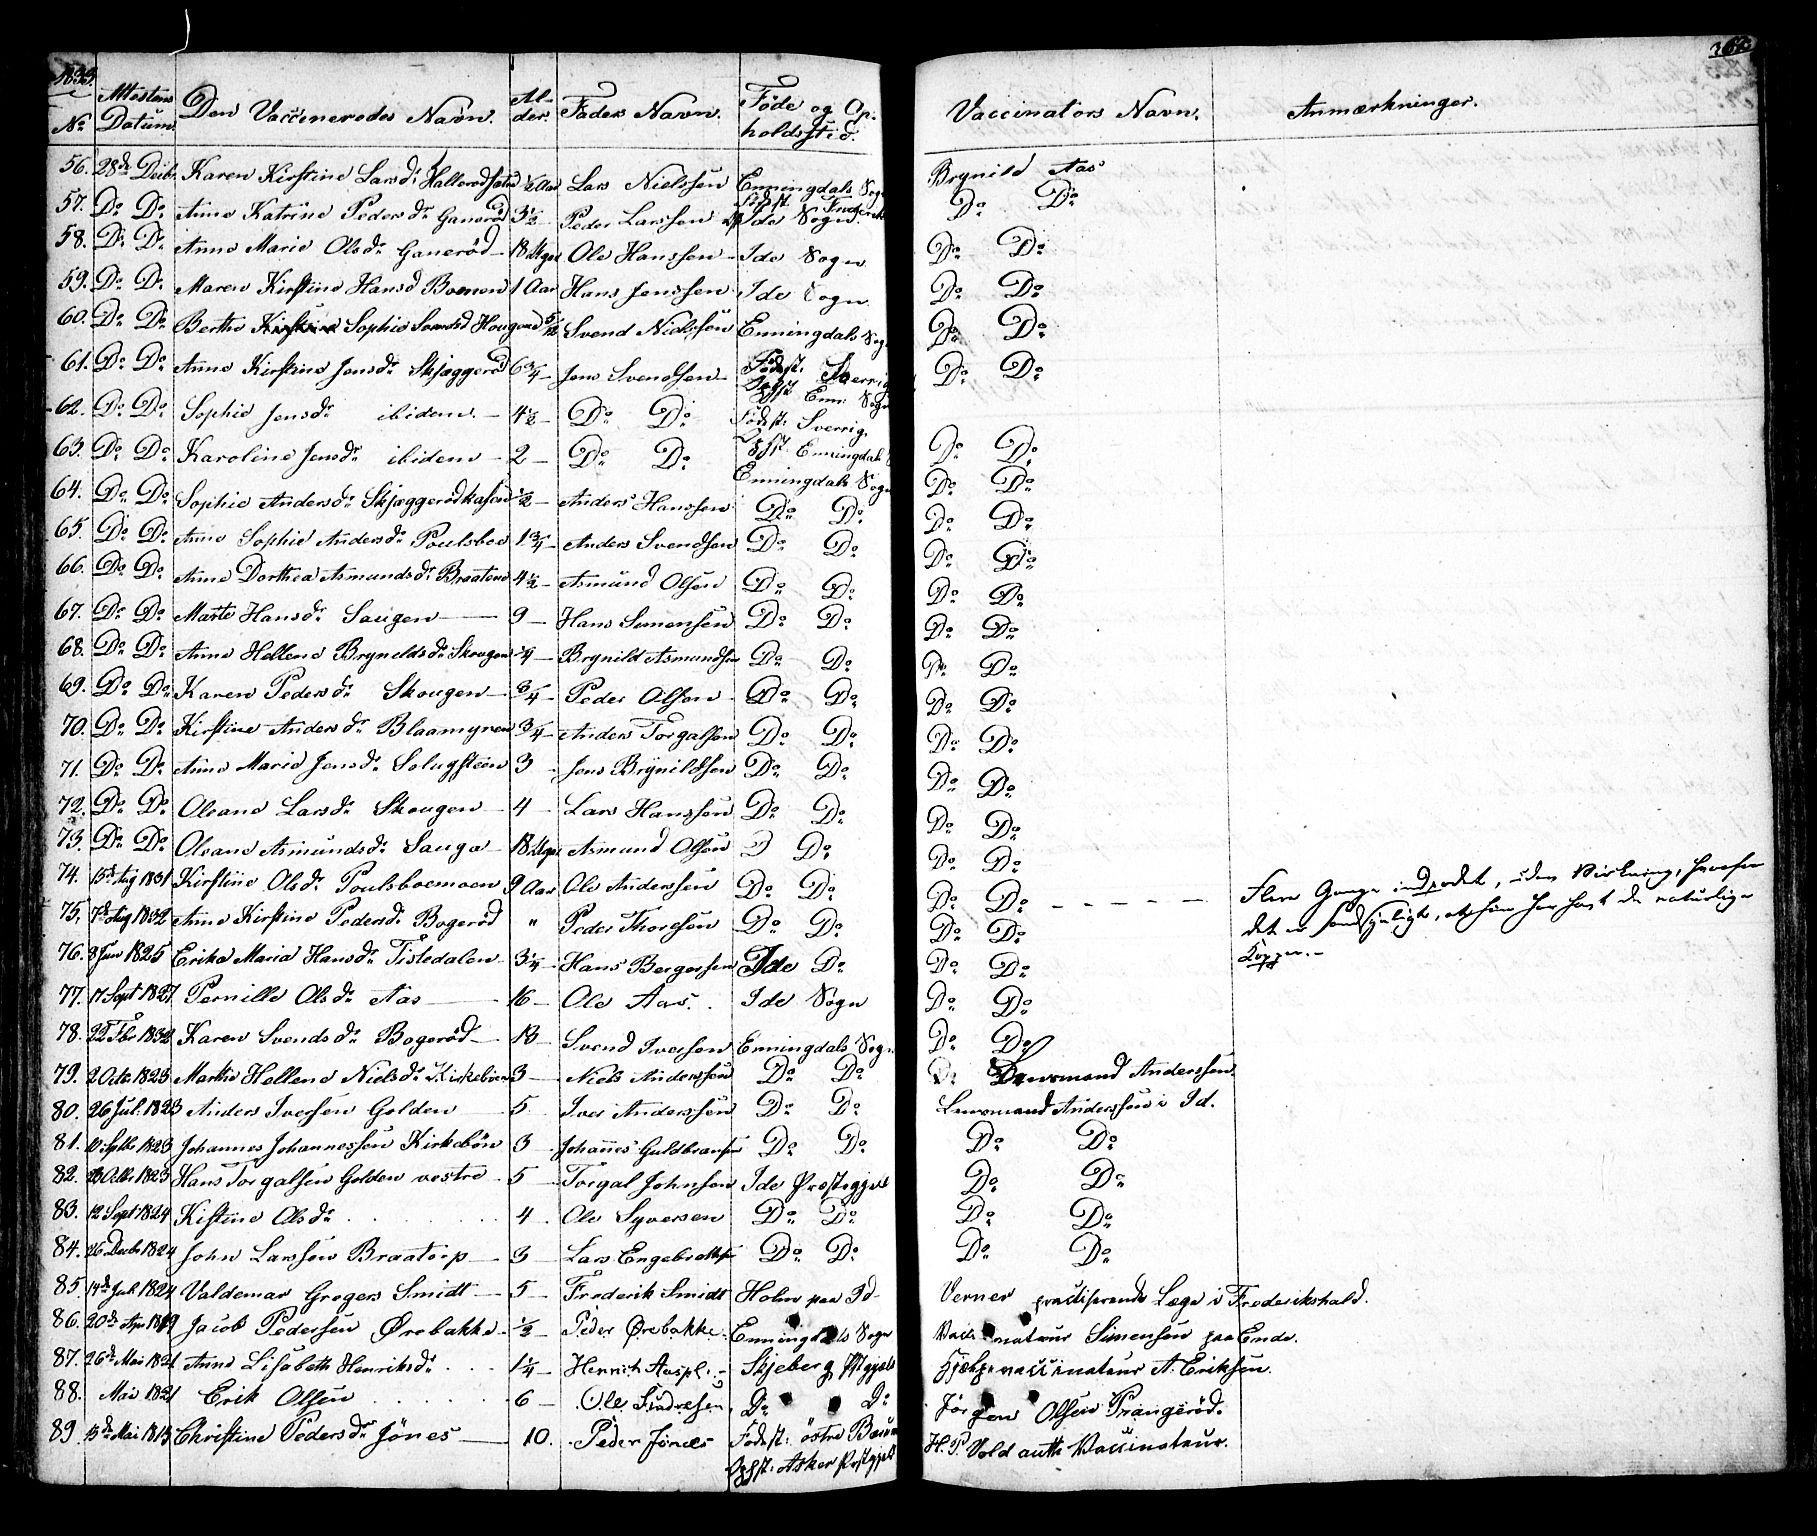 1833.
No Attestens Datum. Den Vaccineredes Navn. Alder. Faders Navn. Føde og Opholdssted. Vaccinators Navn. Anmærkninger.
56. 28de Decbr. Karen Kirstine Larsdr. Hallerødsæter ½ Aar Lars Nielssen Enningdals Sogn Brynild Aas
57. Do Do Anne Katrine Pedersdr. Ganerød 3½ Peder Larssen Ide Sogn. Do Do
58. Do Do Anne Marie Olsdr. Ganerød 18 Mgr Ole Hanssen Ide Sogn Do Do
59. Do Do Maren Kirstine Hansd. Boemoen 1 Aar Hans Jenssen Ide Sogn Do Do
60. Do Do Berthe Sophie Svendsd Hougend 5/12 Svend Nielssen Enningdals Sogn Do Do
61. Do Do Anne Kirstine Jensdr. Skjæggerød 6¾ Jens Svendsen Fødest. Sverrig Opst. Enn. Sogn Do Do
62. Do Do Sophie Jensdr. ibidem. 4½ Do Do Fødest: Sverrig.
63. Do Do Karoline Jensdr. ibidem 2 Do Do Opst. Enningdals Do Do
64. Do Do Sophie Andersdr. Skjæggerødkasen ½ Anders Hanssen Enningdals Sogn Do Do
65. Do Do Anne Sophie Andersdr. Poulsboe 1¾ Anders Svendsen Do Do Do Do
66. Do Do Anne Dorthea Asmundsdr. Braatene 4½ Asmund Olsen Do Do Do Do
67. Do Do Marte Hansdr. Saugen 9 Hans Simensen Do Do Do Do
68. Do Do Anne Hellene Bryneldsdr. Skougen ¼ Brynild Asmundsen Do Do Do Do
69. Do Do Karen Pedersdr. Skougen ¾ Peder Olsen Do Do Do Do
70. Do Do Kirstine Andersdr. Blaamyren ¾ Anders Torgalsen Do Do Do Do
71. Do Do Anne Marie Jensdr. Solugsteen 3 Jens Brynildsen Do Do Do Do
72. Do Do Oleane Larsdr. Skougen 4 Lars Hanssen Do Do Do Do
73. Do Do Oleane Asmundsdr. Sauga 18 Mgr Asmund Olsen D Do Do Do
74. 15de Aug 1831 Kirstine Olsdr. Poulsboemoen 9 Aar Ole Anderssen Do Do Do Do Flere Gange indpodet, uden Virkning, hvorfor
75. 7de Aug 1832 Anne Kirstine Pedersdr. Bogerød " Peder Thoresen Do Do Do Do det er sandsynligt, at hun har havt de naturlige
76. 8 Jun 1825 Erika Maria Hansdr. Tistedalen 3¼ Hans Bergersen Ide Do Do Do Kopper.
77. 17 Sept 1827 Pernille Olsdr. Aas 16 Ole Aas. Ide Sogn Do Do
78. 22 Fbr 1832 Karen Svendsdr. Bogerød 13 Svend Iversen Enningdals Sogn Do Do
79. 2 Octbr 1823 Marthe Hellene Nielsdr. Kirkebøen 3 Niels Anderssen Do Do Lensmand Anderssen
80. 26 Jul. 1823 Anders Iversen Golden 5. Iver Anderssen Do Do Lensmand Anderssen i Id.
81. 10 Septbr 1823 Johannes Johannessen Kirkebøn 3 Johannes Guldbransen Do Do Do Do
82. Octbr 1823 Hans Torgalsen Golden vestre 5 Torgal Johnsen Ide Præstegjæld Do Do
83. 12 Sept 1824 Kistine Olsdr. 4. Ole Syversen Do Do Do Do
84. 26 Decbr 1824 John Larssen Braatorp 3 Lars Engebretsen Do Do Do Do
85. 14de Juli 1824 Valdemar Gregers Smidt 5 Frederik Smidt Holm paa Id Verner practiserende Læge i Frederikshald.
86. 20de Apr 1819 Jacob Pedersen Ørebakke ½ Peder Ørebakke. Enningdals Sogn Vaccinateur Simensen paa Ende.
87. 26de Mai 1821 Anne Lisabeth Henriksdr. 1¼ Henrich Aaspl. Skjeberg Pstgjæld Hjælpevaccinateur A. Eriksen.
88. Mai 1821 Erik Olsen 6 Ole Do Do Jørgen Olsen Prangerød.
89. 15de Mai 1813 Christine Pedersdr. Jönes 10. Peder Jönes Fødest: östre Bærum H. P. Vold auth Vaccinateur.
Opst: Asker Prstgjæld